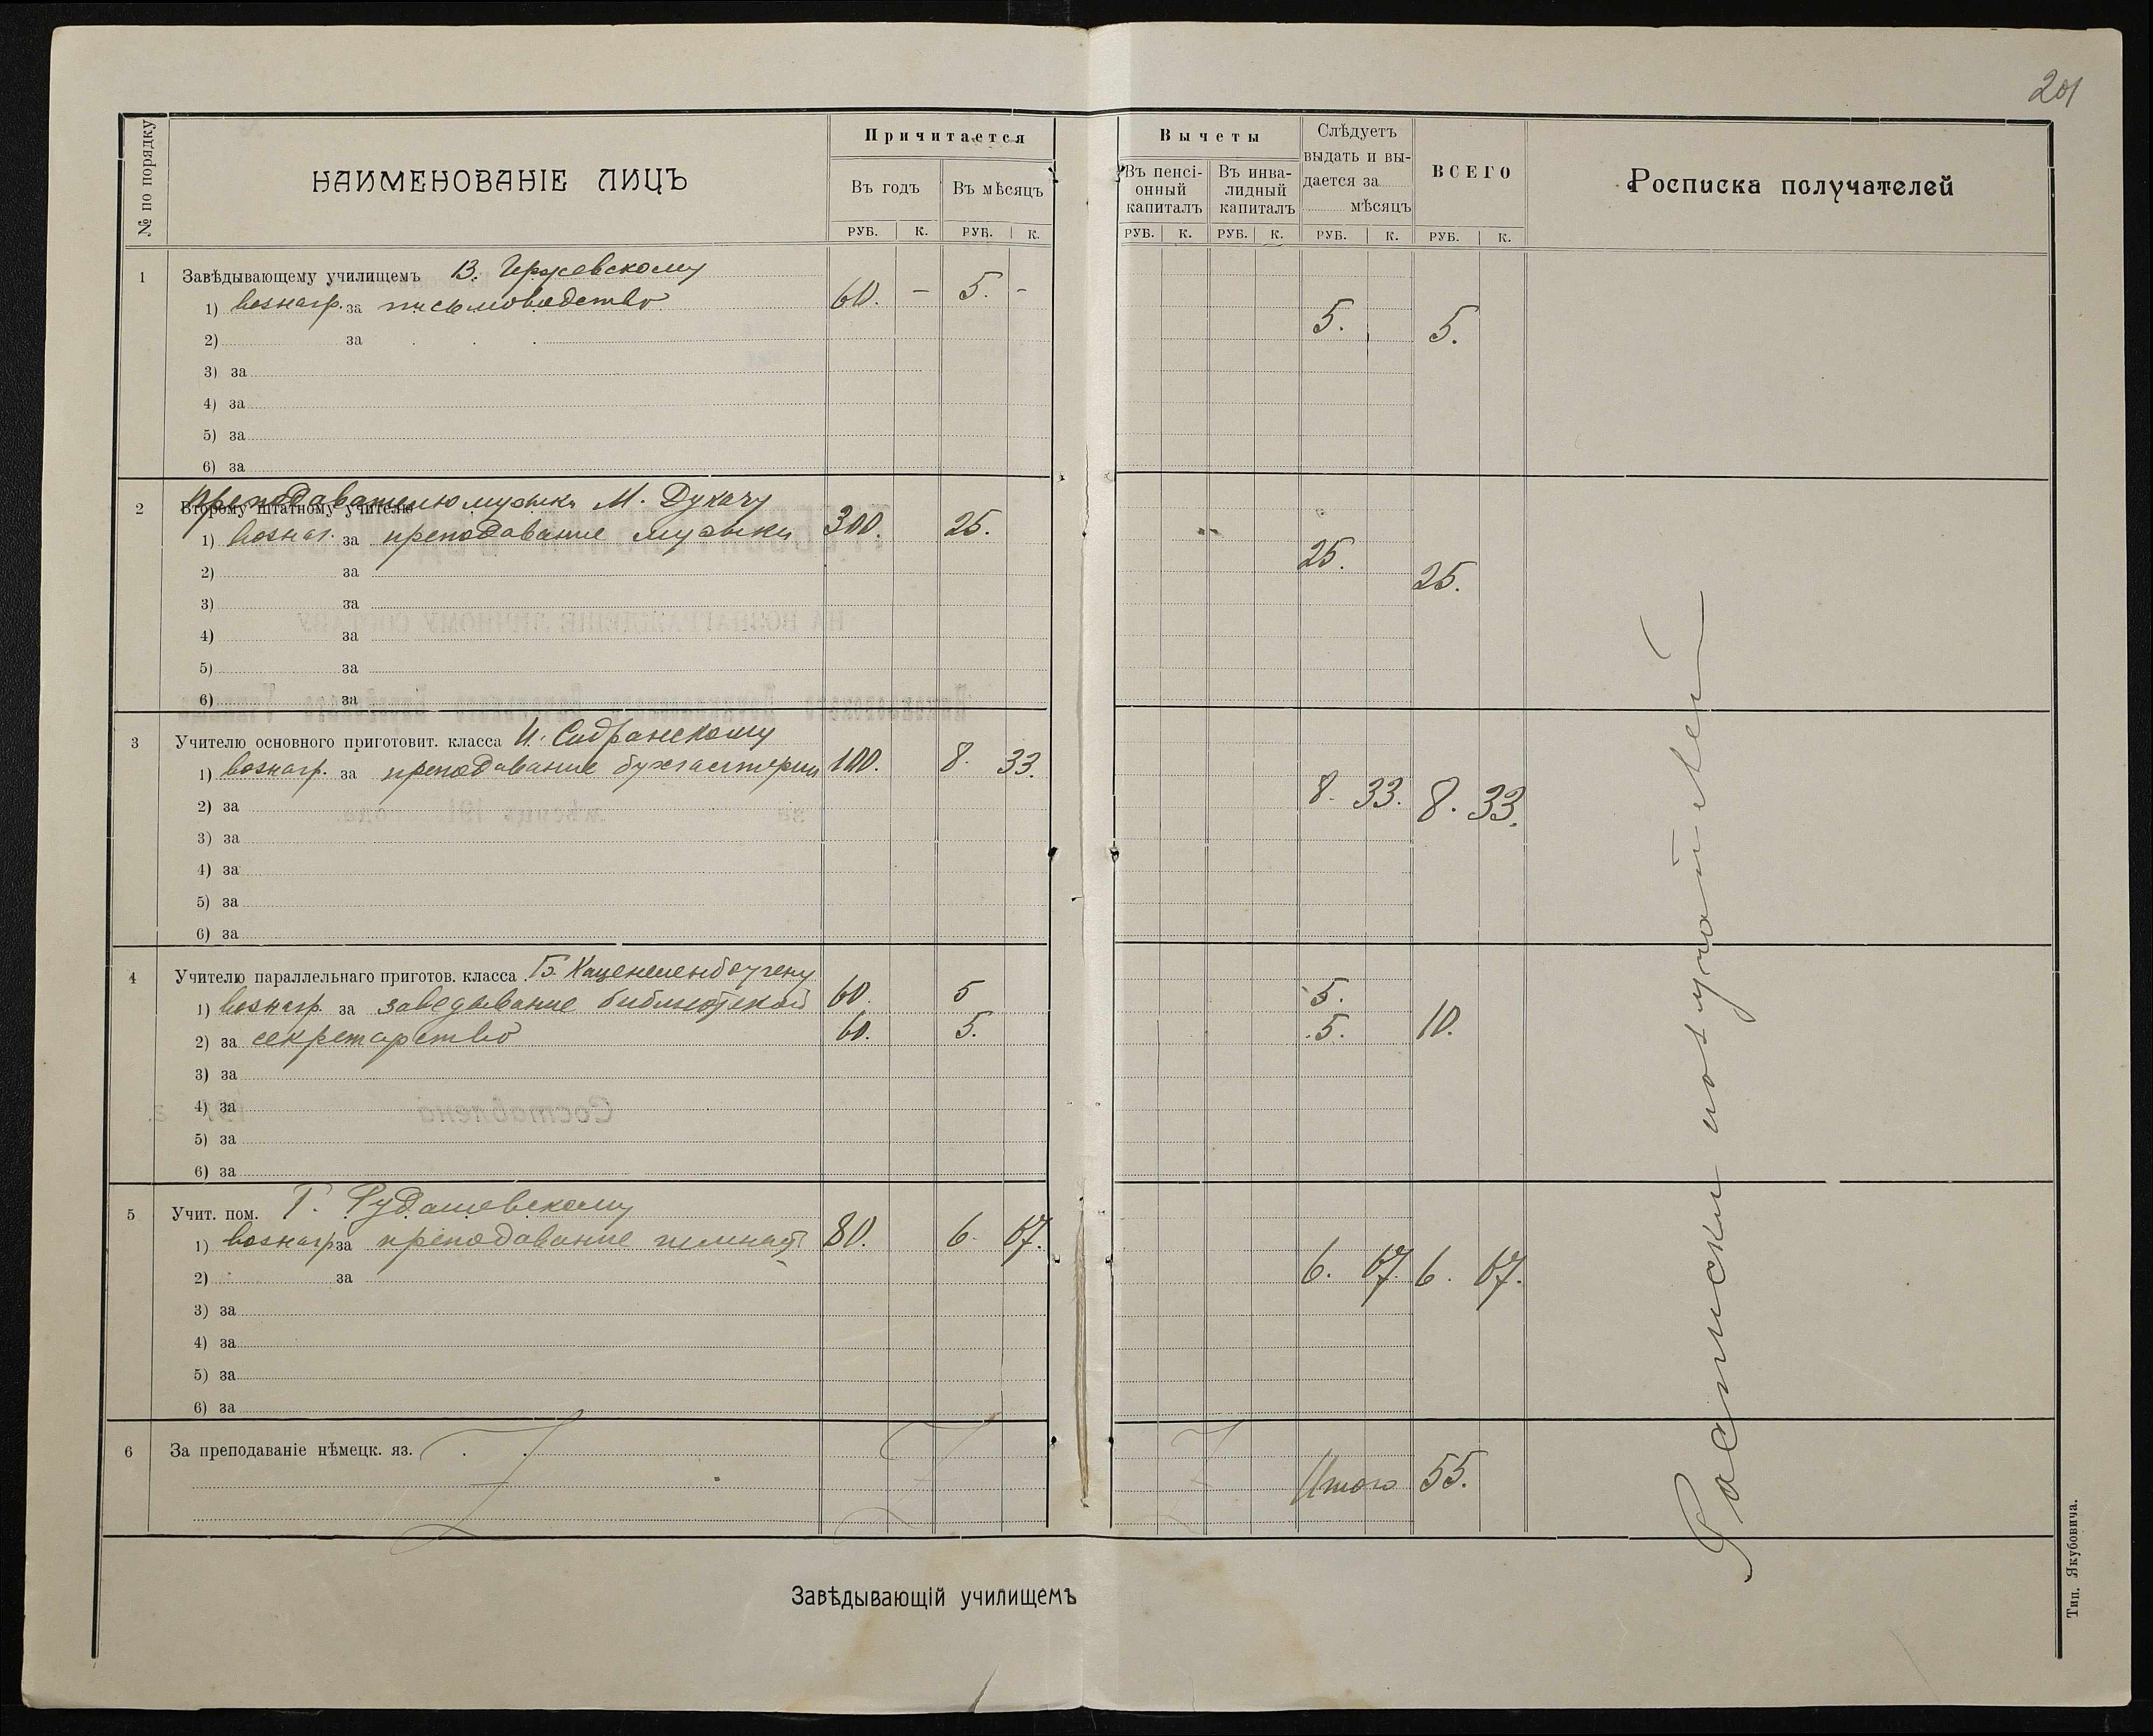 201
№ по порядку
НАИМЕНОВАНІЕ ЛИЦЪ
Причитается
Въ годъ
Въ мѣсяцъ
РУБ. К. РУБ. К.
Вычеты
Въ пенсі-
онный
капиталъ
Въ инва-
лидный
капиталъ
Слѣдуетъ
выдать и вы-
дается за
мѣсяцъ
ВСЕГО
Росписка получателей
РУБ. К. РУБ. К. РУБ. К. РУБ. К.
1 Завѣдывающему училищемъ В.
1) вознагр. за письмоводство 60. - 5. - 5. 5.
2) за
3) за
4) за
5) за
6) за
Преподавателю музыки М. Дукачу
2 Второму штатному учителю
1) вознаг. за преподавание музыки 300. 25. 25. 25.
2) за
3) за
4) за
5) за
6) за
3 Учителю основного приготовит. класса И.
1) вознагр. за преподавание бухгалтерии 100. 8. 33. 8. 33. 8. 33.
2) за
3) за
4) за
5) за
6) за
4 Учителю параллельнаго приготов. класса Б. Каценеленбогену
1) вознагр. за заведывание библиотекой 60. 5 5.
2) за секретарство 60. 5. 5. 10.
3) за
4) за
5) за
6) за
5 Учит. пом. Г. Рудашевскому
1) вознагр за преподавание гимнаст 80. 6. 67. 6. 67. 6. 67.
2) за
3) за
4) за
5) за
6) за
6 За преподаваніе нѣмецк. яз.
Итого 55.
Расписки получателей
Завѣдывающій училищемъ
Тип. Якубовича.